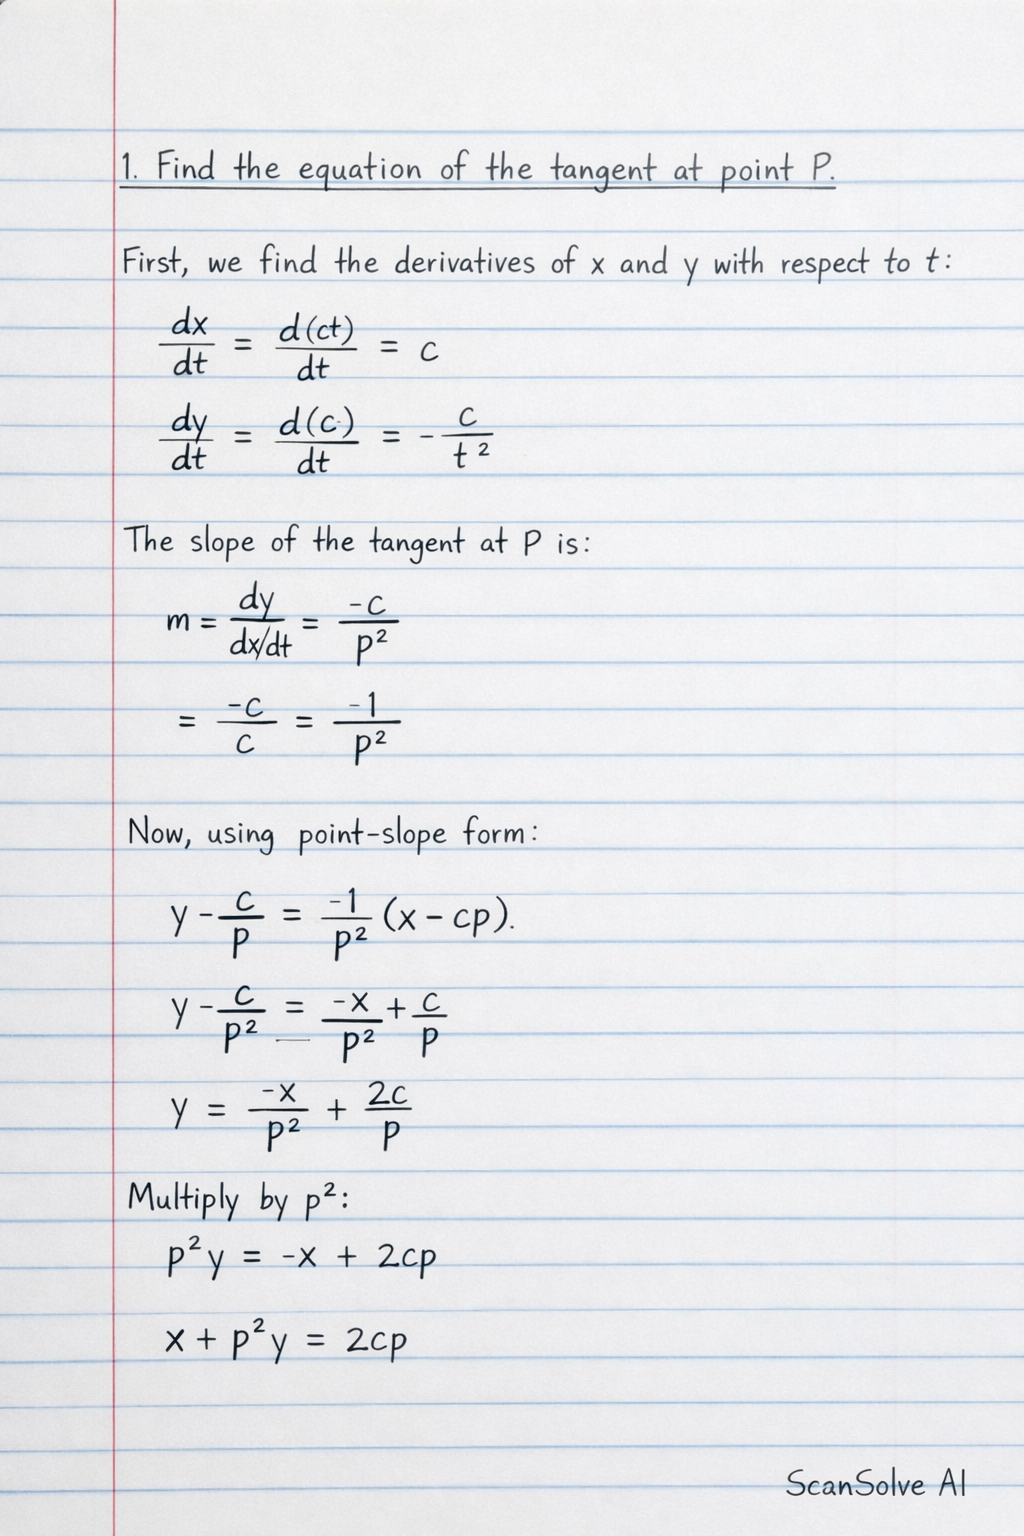 1. Find the equation of the tangent at point P.
First, we find the derivatives of x and y with respect to t:
dx/dt = d(ct)/dt = c
dy/dt = d(c)/dt = - c/t²
The slope of the tangent at P is:
m = dy/(dx/dt) = -c/p²
= -c/c = -1/p²
Now, using point-slope form:
y - c/p = -1/p² (x - cp).
y - c/p² = -x/p² + c/p
y = -x/p² + 2c/p
Multiply by p²:
p²y = -x + 2cp
x + p²y = 2cp
ScanSolve AI